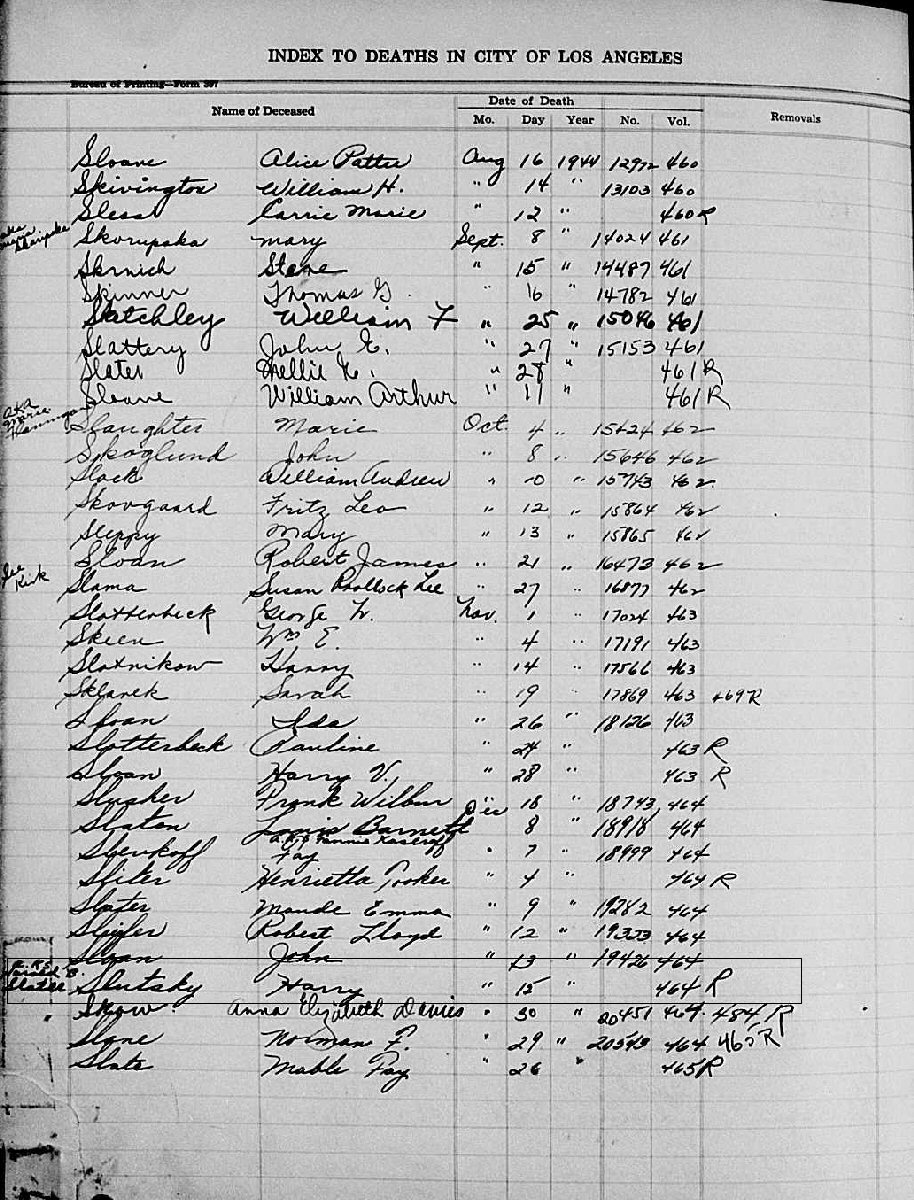 INDEX TO DEATHS IN CITY OF LOS ANGELES
Bureau of Printing—Form
Name of Deceased Date of Death Removals
Mo. Day Year No. Vol.
Sloane Alice Aug 16 1944 12972 460
Skivington William H. " 14 " 13103 460
Sless Carrie Marie " 12 " 460 R
Skorupska Mary Sept. 8 " 14024 461
Skrnich Steve " 15 " 14487 461
Skinner Thomas G. " 16 " 14782 461
William F " 25 " 15046 461
Slattery John E. " 27 " 15153 461
Slater Nellie K. " 28 " 461 R
Sloane William Arthur " 11 " 461 R
aka Marie
Slaughter Marie Oct. 4 " 15624 462
Skoglund John " 8 " 15646 462
Slack William Andrew " " 15743 462
Skovgaard Fritz Leo " 12 " 15864 462
Sleppy Mary " 13 " 15865 462
Sloan Robert James " 21 " 16473 462
See Kirk
Slama Susan Lee " 27 " 16877 462
Slotterbeck George W. Nov. 1 " 17024 463
Skeen Wm E. " 4 " 17191 463
Slotnikow Harry " 14 " 17566 463
Sklarek Sarah " 19 " 17869 463 469 R
Sloan Ida " 26 " 18126 463
Slotterbeck Pauline " 24 " 463 R
Sloan Harry V. " 28 " 463 R
Slusher Frank Wilbur " 18 " 18743 464
Slaton Louis Barnett Dec 8 " 18918 464
a.k.a. Fannie
Slevkoff Fay " 7 " 18999 464
Sliter Henrietta Tooker " 4 " 464 R
Slater Maude Emma " 9 " 19282 464
Sleifer Robert Lloyd " 12 " 19333 464
Sloan John " 13 " 19426 464
Slater
Slutsky Harry " 15 " 464 R
Skow Anna Elizabeth Davies " 30 " 20451 464 484 R
Slane Norman F. " 29 " 20543 464 465 R
Slate Mable Fay " 26 " 465 R